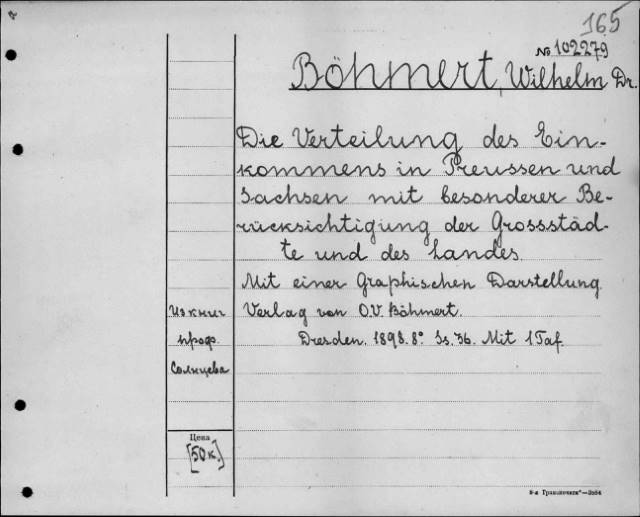 165
№ 102279
Böhmert, Wilhelm Dr.
Die Verteilung des Ein-
kommens in Preussen und
Sachsen mit besonderer Be-
rücksichtigung der Grossstäd-
te und des Landes.
Mit einer Graphischen Darstellung.
Verlag von O.V. Böhmert.
Dresden. 1898. 8° Ss. 36. Mit 1 Taf.
Из книг
проф.
Солнцева
Цена
[50 к.]